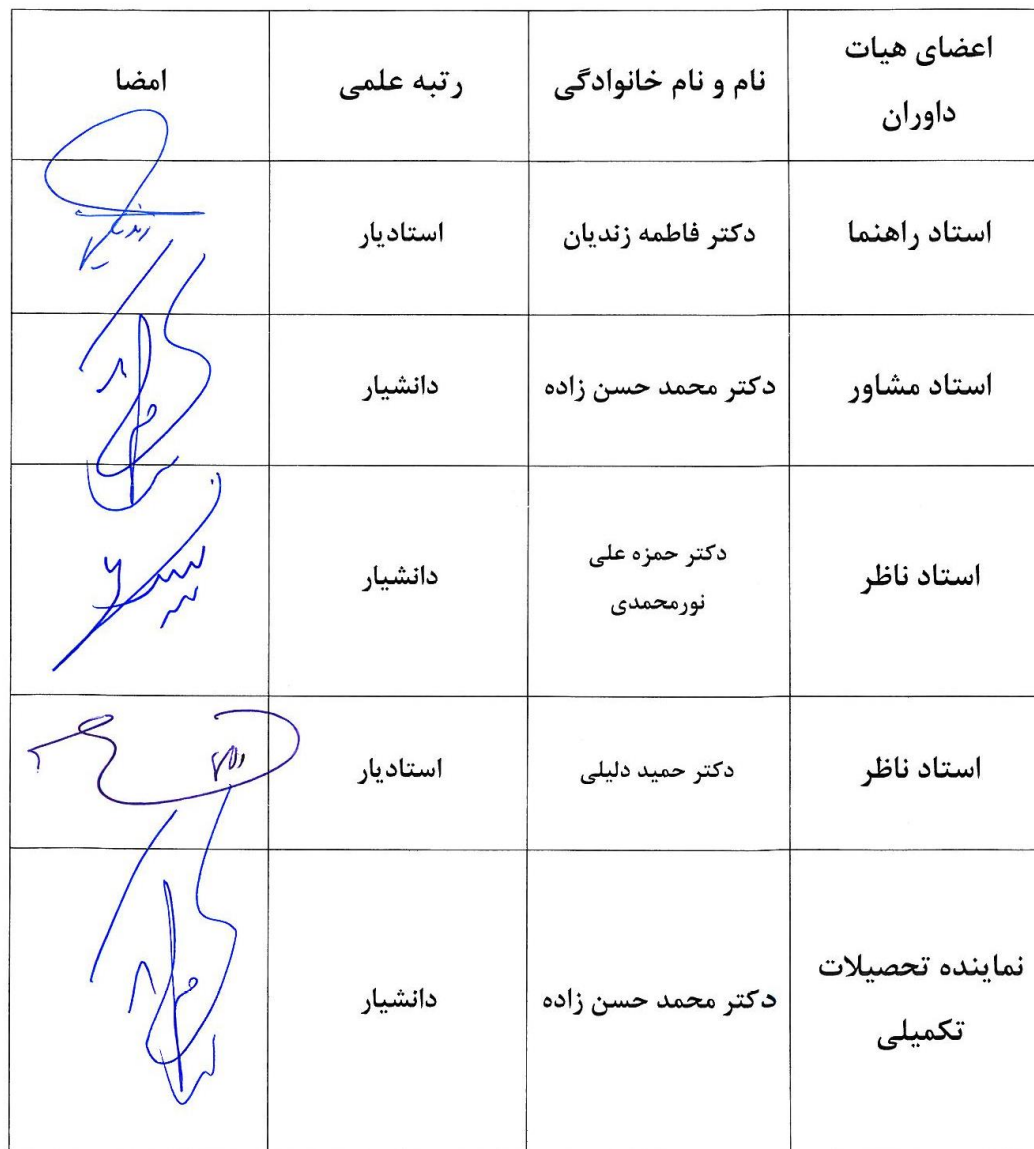 اعضای هیات
داوران
نام و نام خانوادگی
رتبه علمی
امضا
استاد راهنما
دکتر فاطمه زندیان
استادیار
استاد مشاور
دکتر محمد حسن زاده
دانشیار
استاد ناظر
دکتر حمزه علی
نورمحمدی
دانشیار
استاد ناظر
دکتر حمید دلیلی
استادیار
نماینده تحصیلات
تکمیلی
دکتر محمد حسن زاده
دانشیار